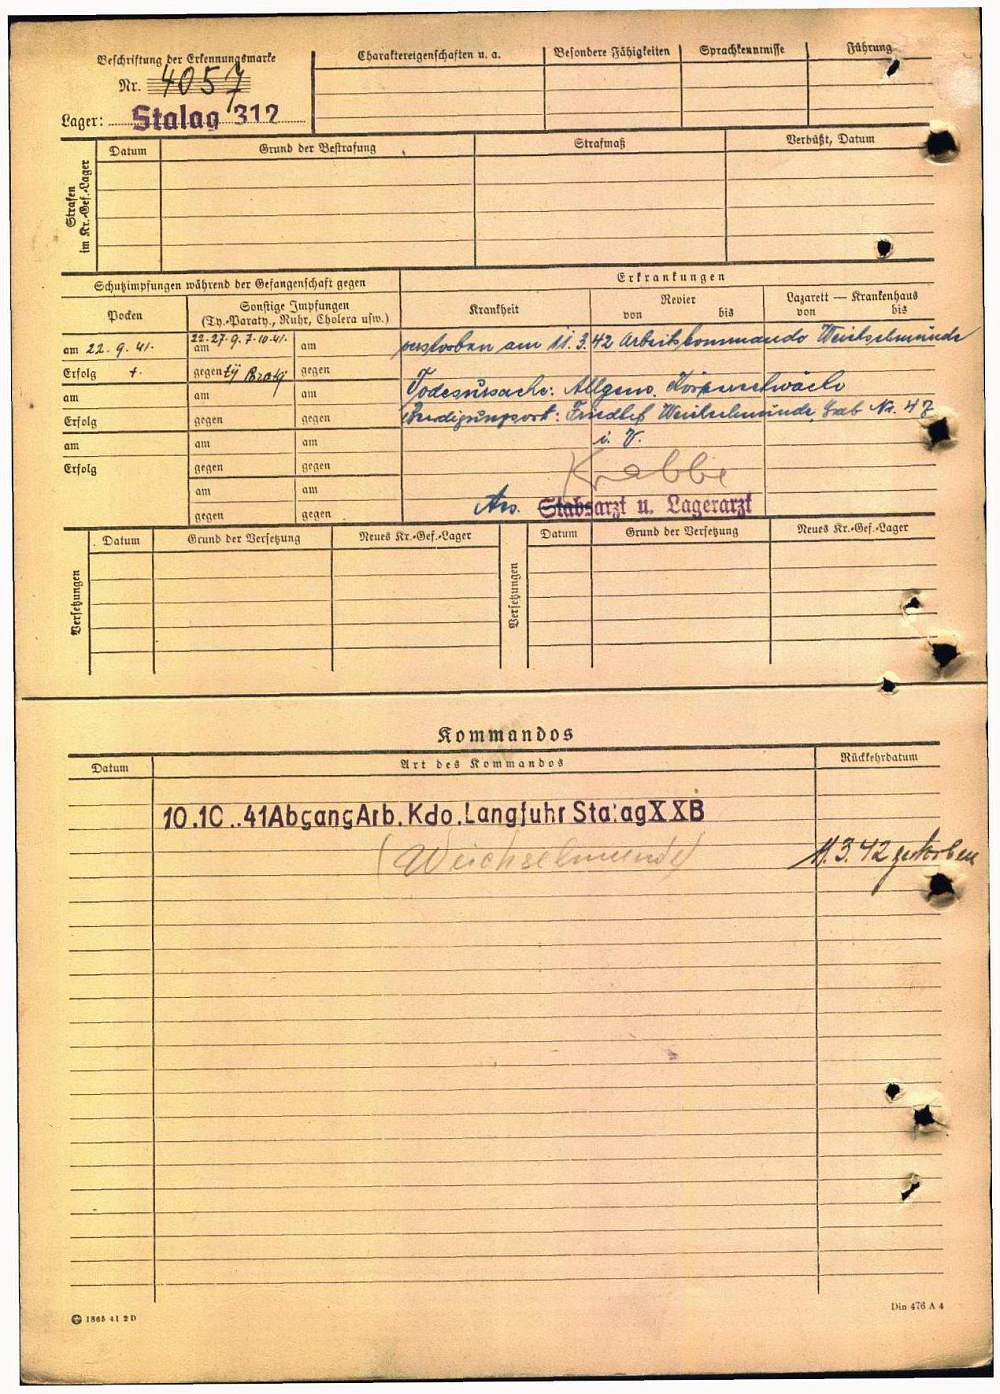 Beschriftung der Erkennungsmarke
Nr. 4057
Lager: Stalag 312
Charaktereigenschaften u. a.
Besondere Fähigkeiten
Sprachkenntnisse
Führung
Strafen im Kr.-Gef.-Lager
Datum
Grund der Bestrafung
Strafmaß
Verbüßt, Datum
Schutzimpfungen während der Gefangenschaft gegen
Erkrankungen
Pocken
Sonstige Impfungen
(Ty.-Paraty., Ruhr, Cholera usw.)
Krankheit
Revier
von bis
Lazarett — Krankenhaus
von bis
am 22. 9. 41.
22.-27.9. 7.10.41.
am am
verstorben am 11.3.42 Arbeitskommando Weichselmünde
Erfolg +.
gegen gegen
am am am
Todesursache: Allgem. Körperschwäche
Erfolg gegen gegen
Beerdigungsort: Friedhof Weichselmünde, Grab Nr. 47
am am am
i. V.
Erfolg gegen gegen
Krabbe
am am
Stabsarzt u. Lagerarzt
gegen gegen
Versetzungen
Datum
Grund der Versetzung
Neues Kr.-Gef.-Lager
Versetzungen
Datum
Grund der Versetzung
Neues Kr.-Gef.-Lager
Kommandos
Datum
Art des Kommandos
Rückkehrdatum
10.10..41 Abgang Arb. Kdo. Langfuhr Stalag XXB
(Weichselmünde)
11.3.42 gestorben
1865 41 2 D
Din 476 A 4